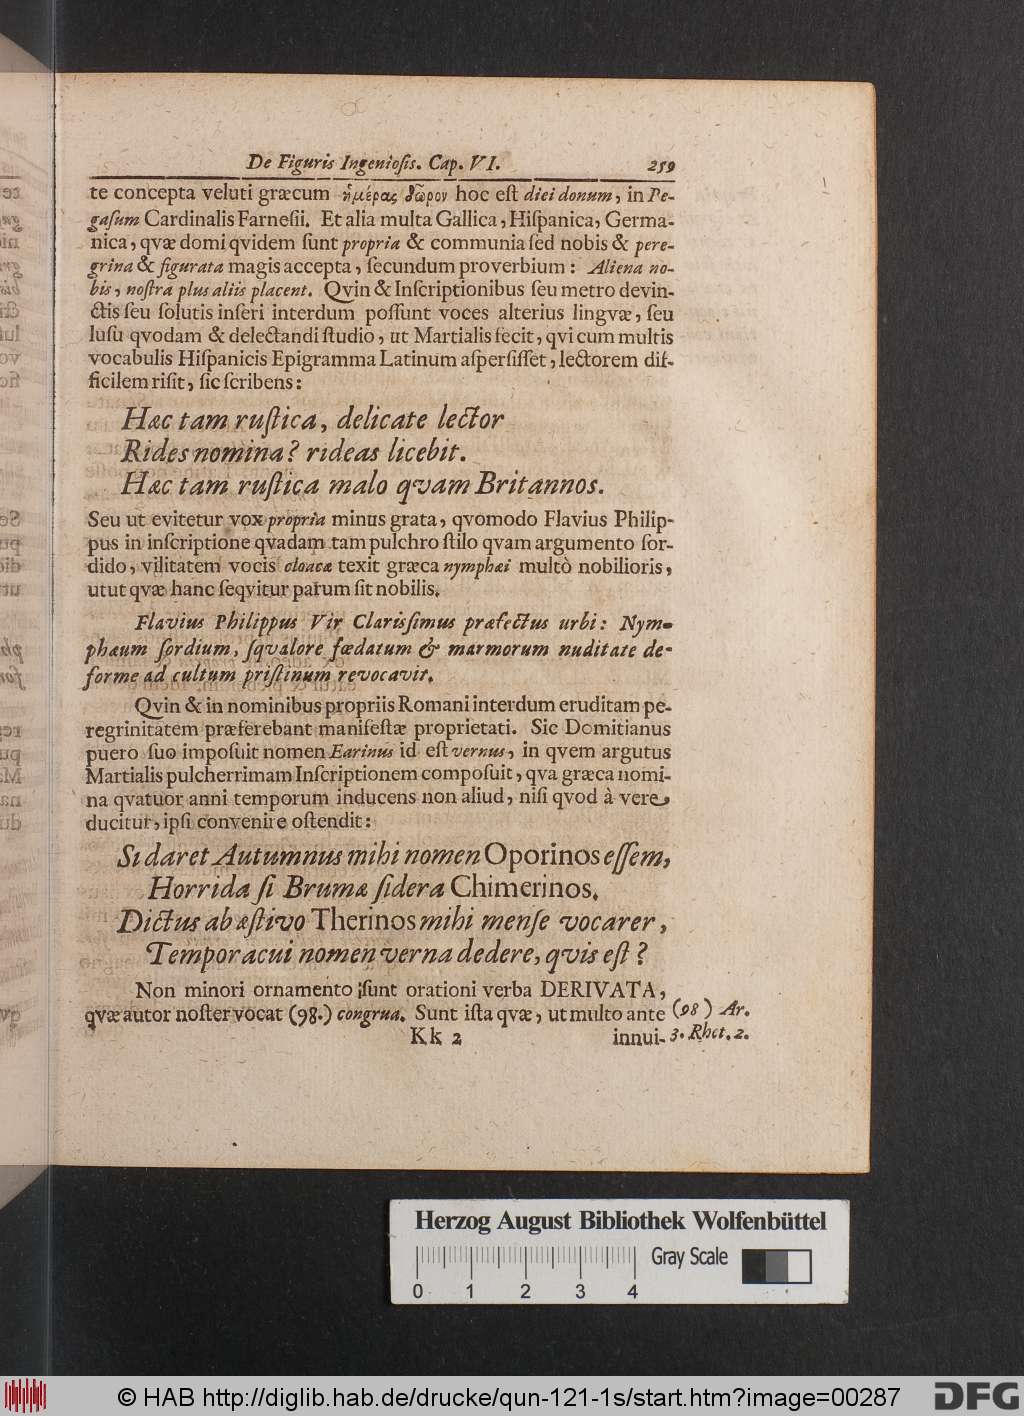 De Figuris Ingenioſis. Cap. VI. 259
te concepta veluti græcum ἡμέρας δῶρον hoc eſt diei donum, in Pe-
gaſum Cardinalis Farneſii. Et alia multa Gallica, Hiſpanica, Germa-
nica, qvæ domi qvidem ſunt propria & communia ſed nobis & pere-
grina & figurata magis accepta, ſecundum proverbium: Aliena no-
bis, noſtra plus aliis placent. Qvin & Inſcriptionibus ſeu metro devin-
ctis ſeu ſolutis inſeri interdum poſſunt voces alterius lingvæ, ſeu
luſu qvodam & delectandi ſtudio, ut Martialis fecit, qvi cum multis
vocabulis Hiſpanicis Epigramma Latinum aſperſiſſet, lectorem dif-
ficilem riſit, ſic ſcribens:
Hæc tam ruſtica, delicate lector
Rides nomina? rideas licebit.
Hæc tam ruſtica malo qvam Britannos.
Seu ut evitetur vox propria minus grata, qvomodo Flavius Philip-
pus in inſcriptione qvadam tam pulchro ſtilo qvam argumento ſor-
dido, vilitatem vocis cloacæ texit græca nymphæi multò nobilioris,
utut qvæ hanc ſeqvitur parum ſit nobilis.
Flavius Philippus Vir Clarisſimus præfectus urbi: Nym-
phæum ſordium, ſqvalore fœdatum & marmorum nuditate de-
forme ad cultum priſtinum revocavit.
Qvin & in nominibus propriis Romani interdum eruditam pe-
regrinitatem præferebant manifeſtæ proprietati. Sic Domitianus
puero ſuo impoſuit nomen Earinus id eſt vernus, in qvem argutus
Martialis pulcherrimam Inſcriptionem compoſuit, qva græca nomi-
na qvatuor anni temporum inducens non aliud, niſi qvod à vere
ducitur, ipſi convenire oſtendit:
Si daret Autumnus mihi nomen Oporinos eſſem,
Horrida ſi Brumæ ſidera Chimerinos.
Dictus ab æſtivo Therinos mihi menſe vocarer,
Tempora cui nomen verna dedere, qvis eſt?
Non minori ornamento ſunt orationi verba DERIVATA,
qvæ autor noſter vocat (98.) congrua. Sunt iſta qvæ, ut multo ante (98) Ar.
Kk 2 innui- 3. Rhet. 2.
Herzog August Bibliothek Wolfenbüttel
Gray Scale
0 1 2 3 4
© HAB http://diglib.hab.de/drucke/qun-121-1s/start.htm?image=00287
DFG